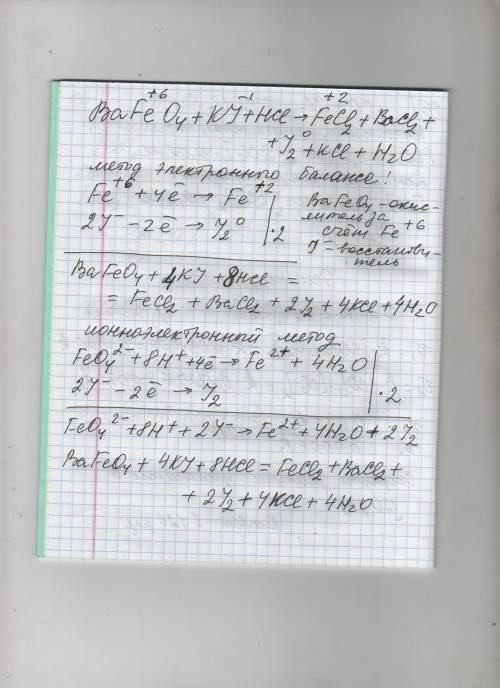 +6 -1 +2
BaFeO4 + KJ + HCl → FeCl2 + BaCl2 +
+ J2⁰ + KCl + H2O
метод электронного баланса!
Fe⁺⁶ + 4ē → Fe⁺² BaFeO4 - окис-
2J⁻ - 2ē → J2⁰ | ·2 литель за
счёт Fe⁺⁶
J⁻ - восстанови-
тель
BaFeO4 + 4KJ + 8HCl =
= FeCl2 + BaCl2 + 2J2 + 4KCl + 4H2O
ионноэлектронный метод
FeO4²⁻ + 8H⁺ + 4ē → Fe²⁺ + 4H2O
2J⁻ - 2ē → J2 | ·2
FeO4²⁻ + 8H⁺ + 2J⁻ → Fe²⁺ + 4H2O + 2J2
BaFeO4 + 4KJ + 8HCl = FeCl2 + BaCl2 +
+ 2J2 + 4KCl + 4H2O